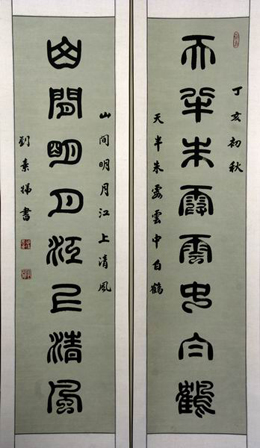 丁亥初秋
天半朱霞雲中白鶴
天半朱霞雲中白鶴
山間明月江上清風
山間明月江上清風
書